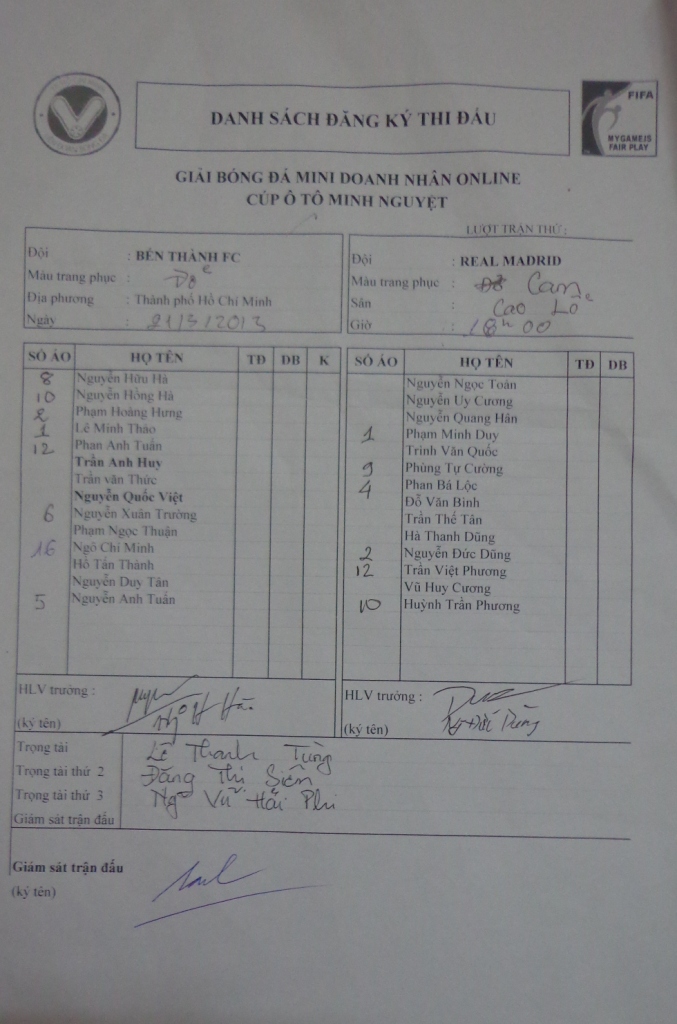 DANH SÁCH ĐĂNG KÝ THI ĐẤU
FIFA
MYGAMEIS
FAIR PLAY
GIẢI BÓNG ĐÁ MINI DOANH NHÂN ONLINE
CÚP Ô TÔ MINH NGUYỆT
LƯỢT TRẬN THỨ :
Đội : BẾN THÀNH FC
Màu trang phục : Đỏ
Địa phương : Thành phố Hồ Chí Minh
Ngày : 21/3/2013
Đội : REAL MADRID
Màu trang phục : Cam
Sân : Cao Lỗ
Giờ : 18h00
SỐ ÁO HỌ TÊN TĐ DB K
8 Nguyễn Hữu Hà
10 Nguyễn Hồng Hà
2 Phạm Hoàng Hưng
1 Lê Minh Thảo
12 Phan Anh Tuấn
Trần Anh Huy
Trần văn Thức
Nguyễn Quốc Việt
6 Nguyễn Xuân Trường
Phạm Ngọc Thuận
16 Ngô Chí Minh
Hồ Tấn Thành
Nguyễn Duy Tân
5 Nguyễn Anh Tuấn
SỐ ÁO HỌ TÊN TĐ DB
Nguyễn Ngọc Toản
Nguyễn Uy Cương
Nguyễn Quang Hân
1 Phạm Minh Duy
Trịnh Văn Quốc
9 Phùng Tự Cường
4 Phan Bá Lộc
Đỗ Văn Bình
Trần Thế Tân
Hà Thanh Dũng
2 Nguyễn Đức Dũng
12 Trần Việt Phương
Vũ Huy Cương
10 Huỳnh Trần Phương
HLV trưởng :
(ký tên)
HLV trưởng :
(ký tên) Ng Đức Dũng
Trọng tài Lê Thanh Tùng
Trọng tài thứ 2 Đặng Thị Siên
Trọng tài thứ 3 Ngô Vũ Hải Phi
Giám sát trận đấu
Giám sát trận đấu
(ký tên)